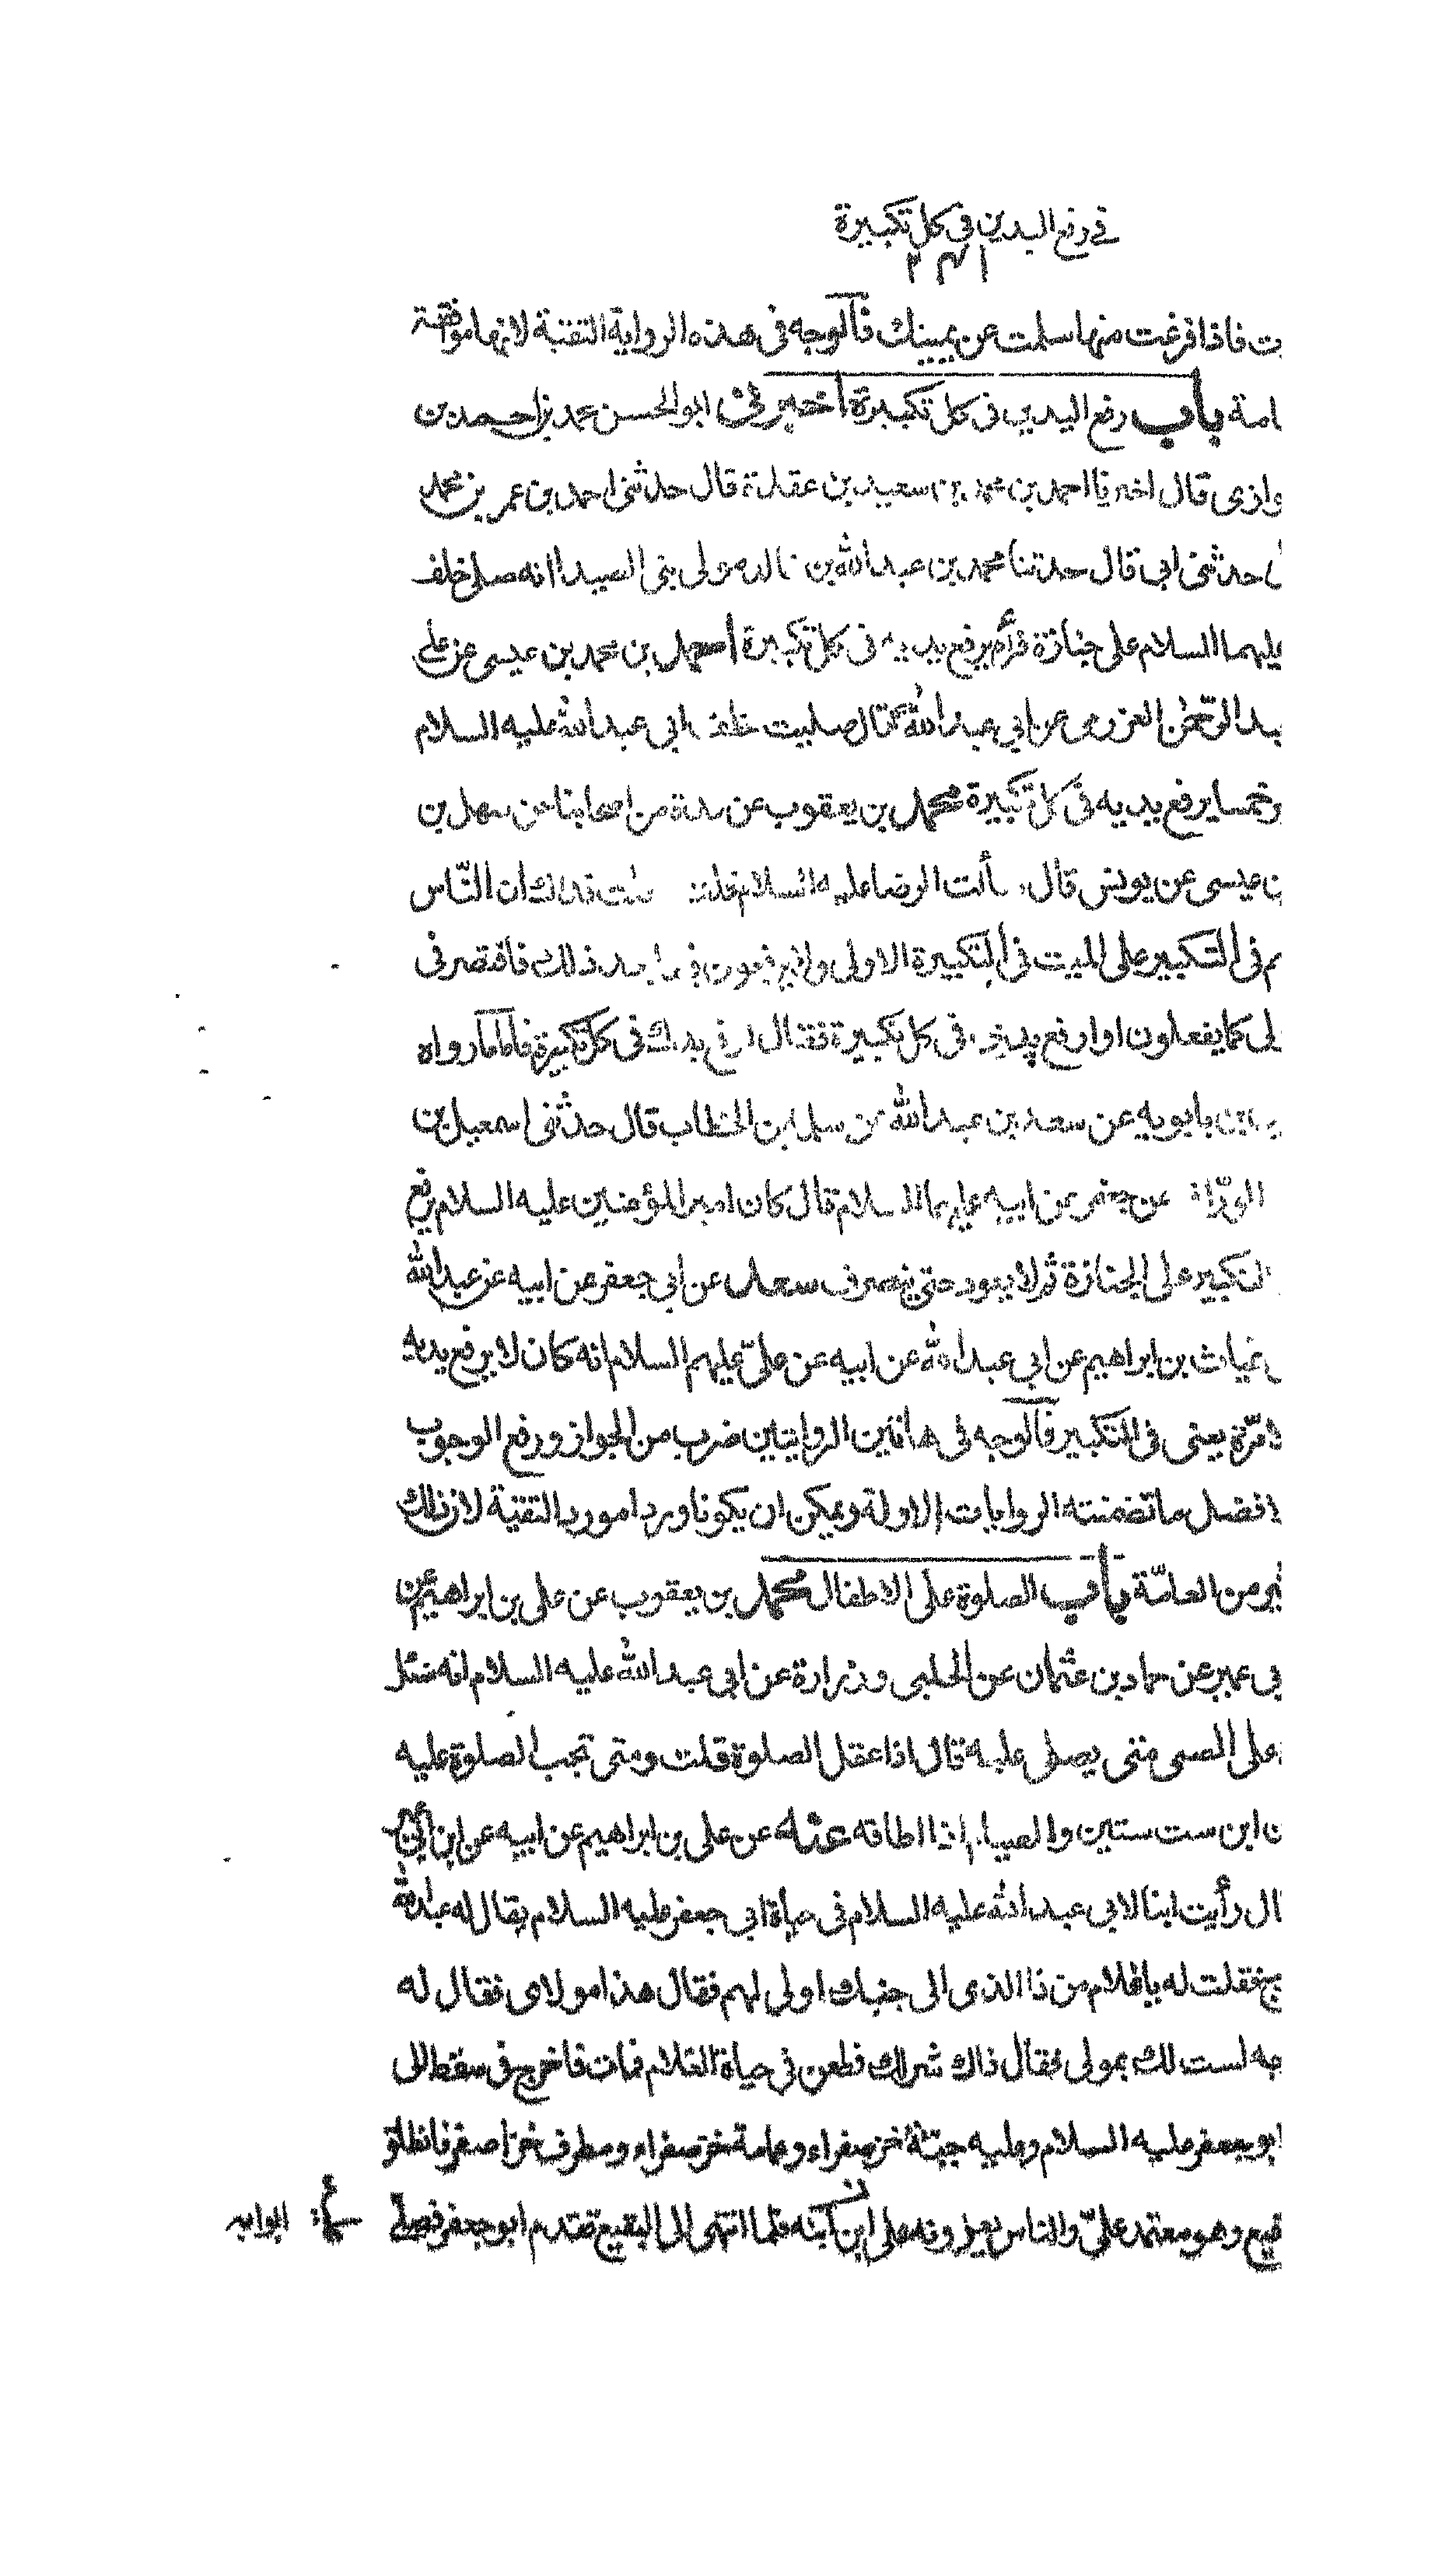 في رفع اليدين في كل تكبيرة
ت فاذا فرغت منها سلمت عن يمينك فالوجه في هذه الرواية التقية لانها موافقة
امة باب رفع اليدين في كل تكبيرة أخبرني ابو الحسن محمد بن احمد بن
قال اخبرنا احمد بن محمد بن سعيد بن عقدة قال حدثني احمد بن عمر بن محمد
حدثني ابي قال حدثنا محمد بن عبد الله بن خالد مولى بني الصيدا انه صلى خلف
عليهما السلام على جنازة فرآه يرفع يديه في كل تكبيرة أحمد بن محمد بن عيسى عن علي
بد الرحمن العزرمي عن ابي عبد الله قال صليت خلف ابي عبد الله عليه السلام
خمسا يرفع يديه في كل تكبيرة محمد بن يعقوب عن عدة من اصحابنا عن سهل بن
ن عيسى عن يونس قال سألت الرضا عليه السلام قلت جعلت فداك ان الناس
في التكبير على الميت في التكبيرة الاولى ولا يرفعون فيما بعد ذلك فاقتصر في
لى كما يفعلون او ارفع يدي في كل تكبيرة فقال ارفع يدك في كل تكبيرة فأما ما رواه
بن بابويه عن سعد بن عبد الله عن سلمة بن الخطاب قال حدثني اسمعيل بن
عن جعفر عن ابيه عليهما السلام قال كان امير المؤمنين عليه السلام يرفع
التكبير على الجنازة ثم لا يعود حتى ينصرف سعد عن ابي جعفر عن ابيه عن عبد الله
غياث بن ابراهيم عن ابي عبد الله عن ابيه عن علي عليهم السلام انه كان لا يرفع يديه
لا مرة يعني في التكبير فالوجه في هاتين الروايتين ضرب من الجواز ورفع الوجوب
لافضل ما تضمنته الروايات الاولة ويمكن ان يكونا وردا مورد التقية لان ذلك
من العامّة باب الصلوة على الاطفال محمد بن يعقوب عن علي بن ابراهيم عن
بي عمير عن حماد بن عثمان عن الحلبي و زرارة عن ابي عبد الله عليه السلام انه سئل
على الصبي متى يصلى عليه قال اذا عقل الصلوة قلت ومتى تجب الصلوة عليه
ن ابن ست سنين والصيام اذا اطاقه عنه عن علي بن ابراهيم عن ابيه عن ابن أبي
ال رأيت ابنا لابي عبد الله عليه السلام في حياة ابي جعفر عليه السلام يقال له عبد الله
فقلت له يا غلام من ذا الذي الى جنبك لمولى لهم فقال هذا مولاي فقال له
لست لك بمولى فقال ذاك شر لك فطعن في حياة الغلام فمات فاخرج في سفط الى
ابو جعفر عليه السلام وعليه جبّة خز صفراء وعمامة خز صفراء ومطرف خز اصفر فانطلق
قيع وهو معتمد عليّ والناس يعزونه على ابن ابنه فلما انتهى الى البقيع تقدم ابو جعفر فصلّى